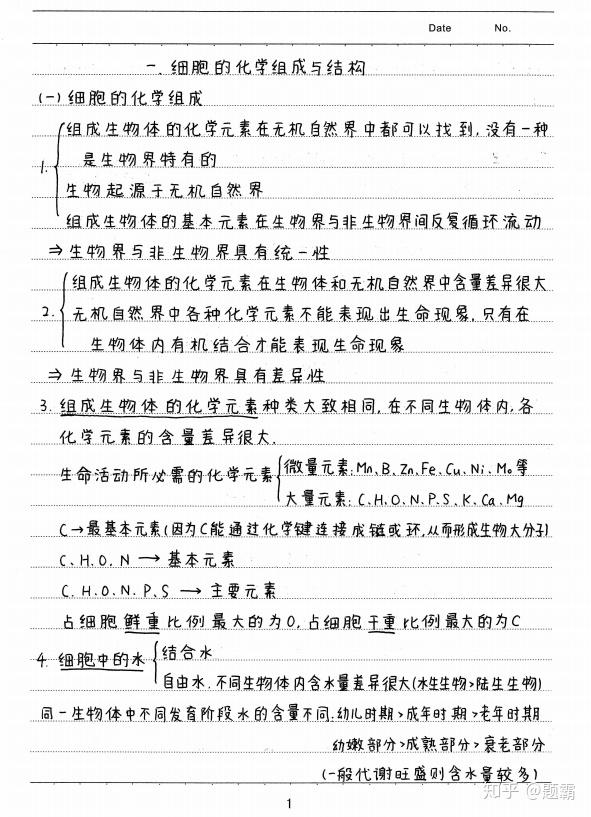 Date No.
一. 细胞的化学组成与结构
(一) 细胞的化学组成
组成生物体的化学元素在无机自然界中都可以找到, 没有一种
1. 是生物界特有的
生物起源于无机自然界
组成生物体的基本元素在生物界与非生物界间反复循环流动
⇒ 生物界与非生物界具有统一性
组成生物体的化学元素在生物体和无机自然界中含量差异很大
2. 无机自然界中各种化学元素不能表现出生命现象, 只有在
生物体内有机结合才能表现生命现象
⇒ 生物界与非生物界具有差异性
3. 组成生物体的化学元素种类大致相同, 在不同生物体内, 各
化学元素的含量差异很大.
生命活动所必需的化学元素 微量元素: Mn、B、Zn、Fe、Cu、Ni、Mo等
大量元素: C、H、O、N、P、S、K、Ca、Mg
C→最基本元素(因为C能通过化学键连接成链或环,从而形成生物大分子)
C、H、O、N → 基本元素
C、H、O、N、P、S → 主要元素
占细胞鲜重比例最大的为O, 占细胞干重比例最大的为C
4. 细胞中的水 结合水
自由水. 不同生物体内含水量差异很大(水生生物>陆生生物)
同一生物体中不同发育阶段水的含量不同: 幼儿时期>成年时期>老年时期
幼嫩部分>成熟部分>衰老部分
(一般代谢旺盛则含水量较多)
知乎 @题霸
1